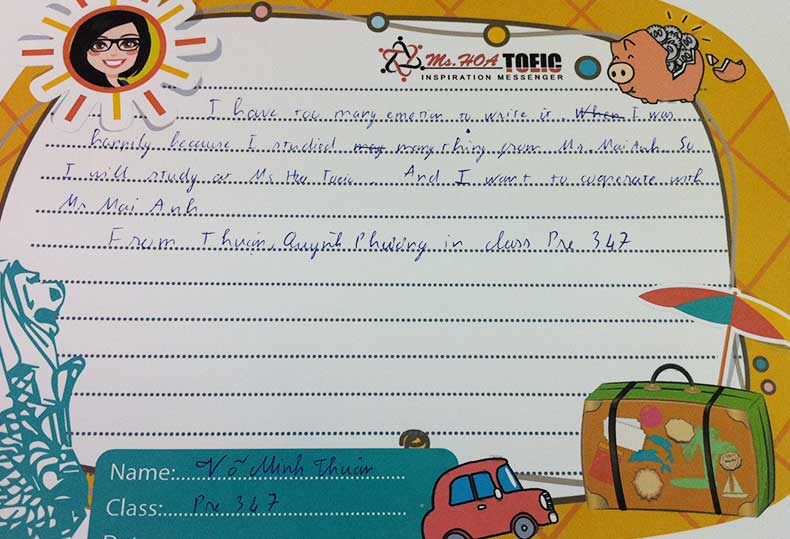 Ms. HOA TOEIC
INSPIRATION MESSENGER
I have too many emotion to write it. When I was
happily because I studied may many thing from Ms. Mai Anh. So
I will study at Ms Hoa Toeic. And I want to cooperate with
Ms Mai Anh
From Thuận, Quỳnh Phương in class Pre 347
Name: Võ Minh Thuận
Class: Pre 347